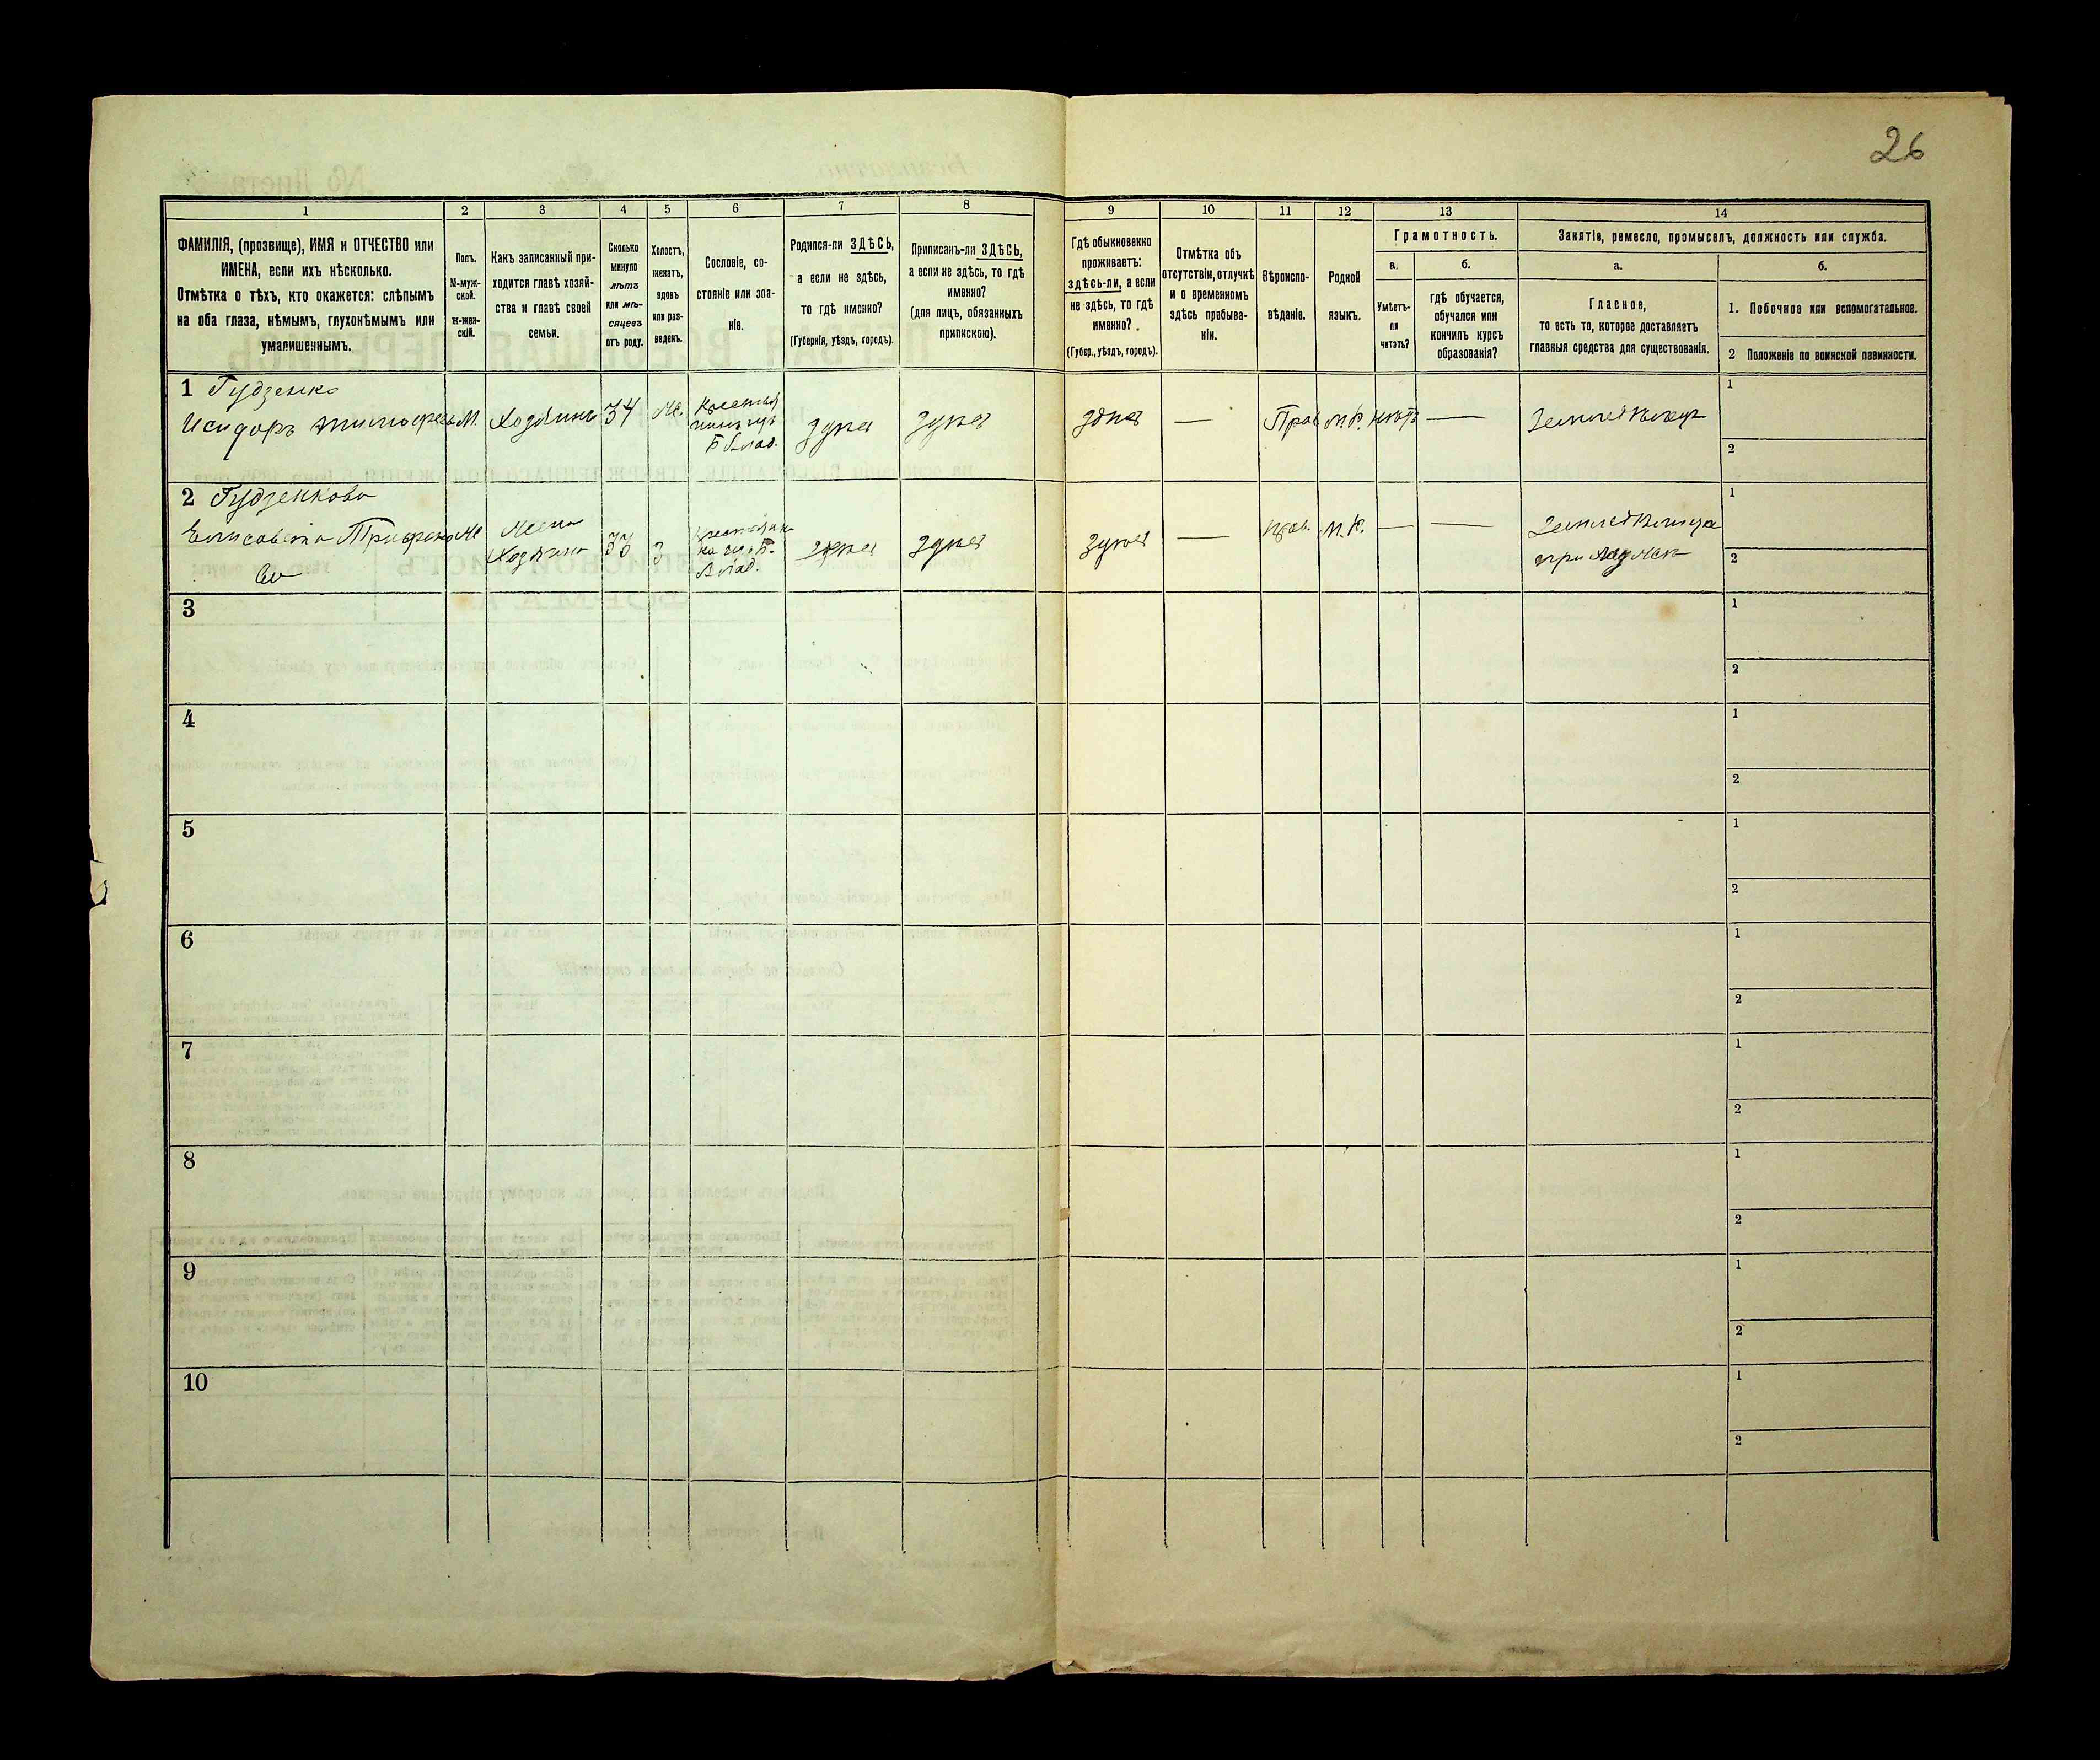 26
1
2
3
4
5
6
7
8
9
10
11
12
13
14
ФАМИЛІЯ, (прозвище), ИМЯ и ОТЧЕСТВО или
ИМЕНА, если ихъ нѣсколько.
Отмѣтка о тѣхъ, кто окажется: слѣпымъ
на оба глаза, нѣмымъ, глухонѣмымъ или
умалишеннымъ.
Полъ.
М-муж-
ской.
ж-жен-
скій.
Какъ записанный при-
ходится главѣ хозяй-
ства и главѣ своей
семьи.
Сколько
минуло
лѣтъ
или мѣ-
сяцевъ
отъ роду.
Холостъ,
женатъ,
вдовъ
или раз-
веденъ.
Сословіе, со-
стояніе или зва-
ніе.
Родился-ли ЗДѢСЬ,
а если не здѣсь,
то гдѣ именно?
(Губернія, уѣздъ, городъ).
Приписанъ-ли ЗДѢСЬ,
а если не здѣсь, то гдѣ
именно?
(для лицъ, обязанныхъ
припискою).
Гдѣ обыкновенно
проживаетъ:
здѣсь-ли, а если
не здѣсь, то гдѣ
именно?
(Губер., уѣздъ, городъ).
Отмѣтка объ
отсутствіи, отлучкѣ
и о временномъ
здѣсь пребыва-
ніи.
Вѣроиспо-
вѣданіе.
Родной
языкъ.
Грамотность.
а.
Умѣетъ-
ли
читать?
б.
гдѣ обучается,
обучался или
кончилъ курсъ
образованія?
Занятіе, ремесло, промыселъ, должность или служба.
а.
Главное,
то есть то, которое доставляетъ
главныя средства для существованія.
б.
1. Побочное или вспомогательное.
2 Положеніе по воинской повинности.
1 Гудзенко
Исидоръ М. 34
Прав М.Р. нѣтъ
1
2
2 Гудзенкова
Елисавета
Жена
33 З
Прав. М.Р.
1
2
3
1
2
4
1
2
5
1
2
6
1
2
7
1
2
8
1
2
9
1
2
10
1
2